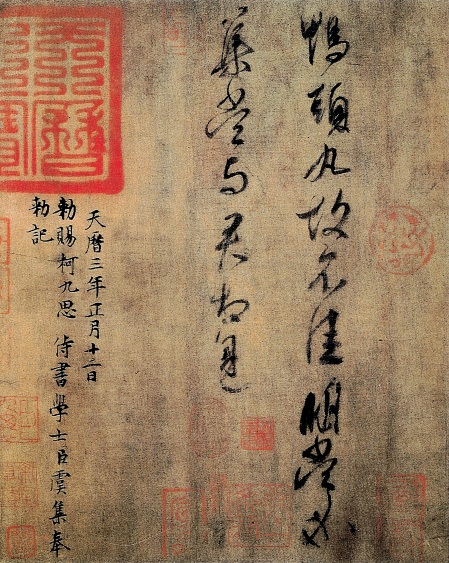 鴨頭丸故不佳明當必
集當与君相見
天曆三年正月十二日
勅賜柯九思 侍書學士臣虞集奉
勅記
天曆